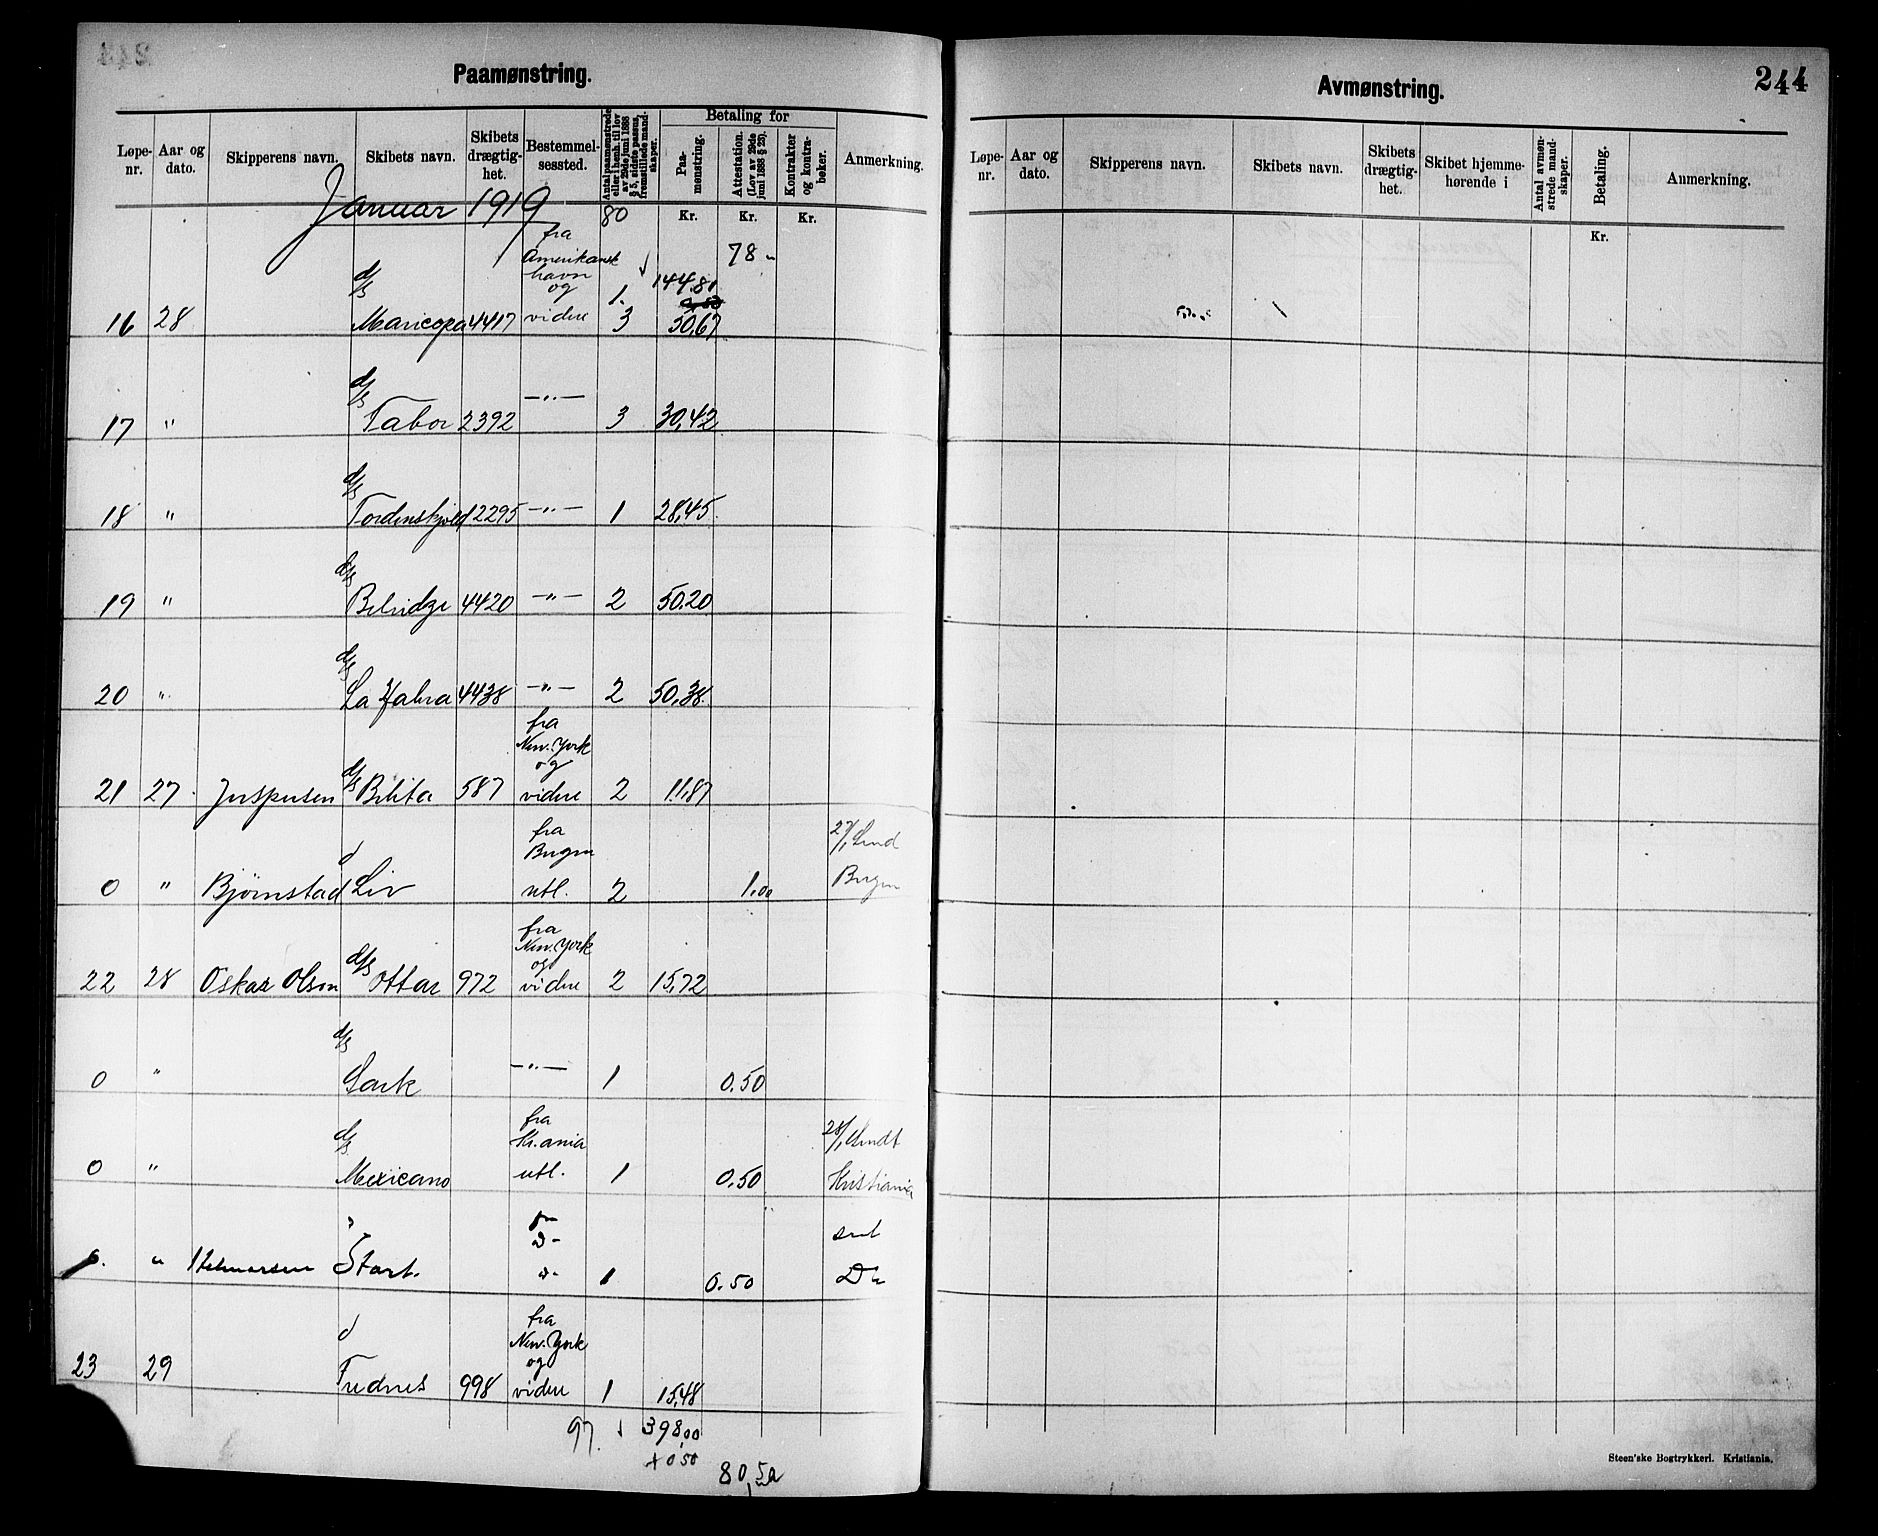 Paamønstring.
Løpe-nr. Aar og dato. Skipperens navn. Skibets navn. Skibets drægtig-het. Bestemmel-sessted. Antal paamønstrede eller i henh. til lov av 29de juni 1888 § 5, sidste passus, fremstillede mand-skaper. Betaling for Paa-mønstring. Attestation. (Lov av 29de juni 1888 § 23). Kontrakter og kontra-bøker. Anmerkning.
Kr. Kr. Kr.
Januar 1919 80
78 "
fra Amerikansk havn og videre
1. 144.81
16 28 d/s Maricopa 4417 3 50,67
17 " d/s Tabor 2392 —"— 3 30,42
18 " d/s Tordenskjold 2295 —"— 1 28,45
19 " d/s Belridge 4420 —"— 2 50.20
20 " d/s La Habra 4438 —"— 2 50,38
21 27 Jespersen d/s Belita 587 fra New.York og videre 2 11,87
0 " Bjørnstad d Liv fra Bergen utl. 2 1.00 27/1 Send Bergen
22 28 Oskar Olson d/s Ottar 972 fra New.York og videre 2 15,72
0 " d/s Sark —"— 1 0.50
0 " d/s Mexicano fra Kr.ania utl. 1 0,50 28/1 Sendt Kristiania
0. " Helmersen " Start. 1 0.50 snt Do
23 29 d Frednes 998 fra New.York og videre 1 15,48
97. 398,00
+ 0 50
80,50
244
Avmønstring.
Løpe-nr. Aar og dato. Skipperens navn. Skibets navn. Skibets drægtig-het. Skibet hjemme-hørende i Antal avmøn-strede mand-skaper. Betaling. Anmerkning.
Kr.
Steen'ske Bogtrykkeri. Kristiania.